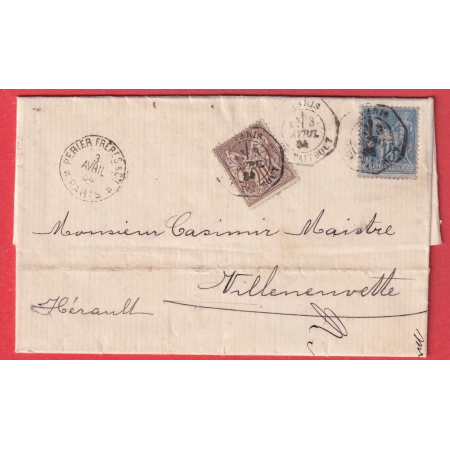 PERIER FRERES & CIE
3
AVRIL
84
PARIS
PARIS
3
AVRIL
84
TAITBOUT
PARIS
Monsieur Casimir Maistre
Villeneuvette
Hérault